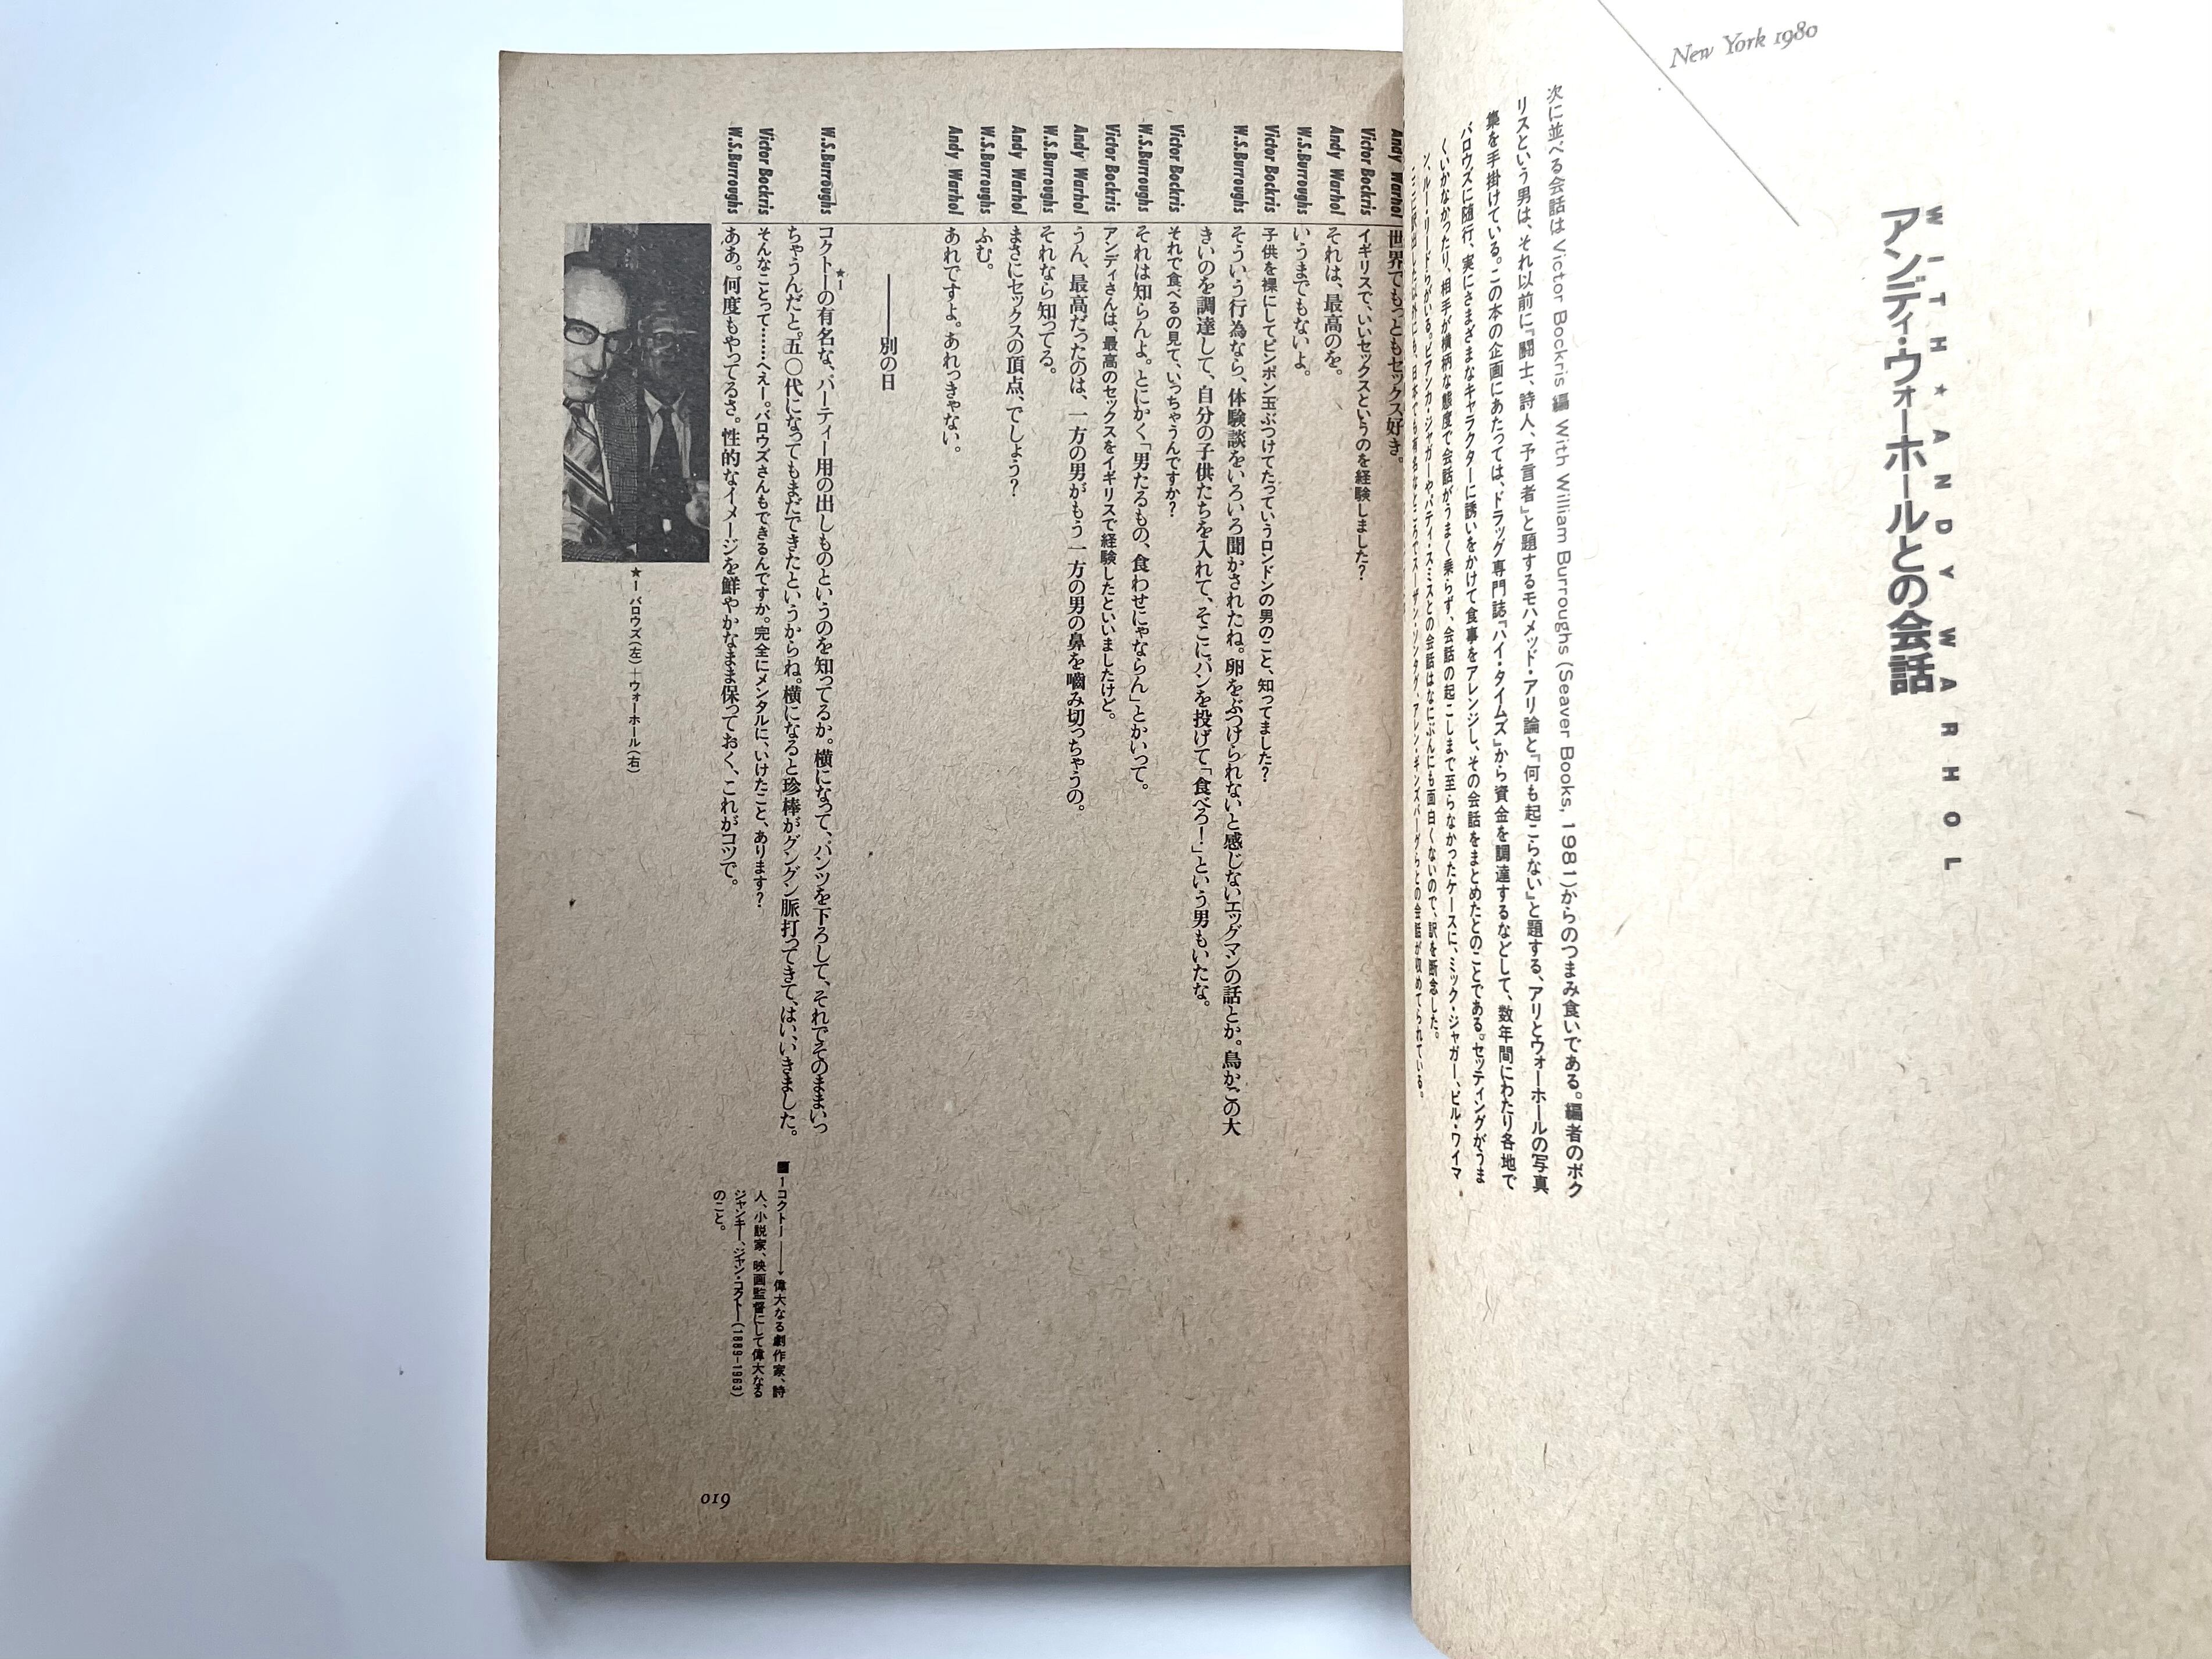 New York 1980
WITH★ANDY WARHOL
アンディ・ウォーホールとの会話
次に並べる会話は Victor Bockris 編 With William Burroughs (Seaver Books, 1981)からのつまみ食いである。編者のボク
リスという男は、それ以前に『闘士、詩人、予言者』と題するモハメッド・アリ論と『何も起こらない』と題する、アリとウォーホールの写真
集を手掛けている。この本の企画にあたっては、ドラッグ専門誌『ハイ・タイムズ』から資金を調達するなどして、数年間にわたり各地で
バロウズに随行、実にさまざまなキャラクターに誘いをかけて食事をアレンジし、その会話をまとめたとのことである。セッティングがうま
くいかなかったり、相手が横柄な態度で会話がうまく乗らず、会話の起こしまで至らなかったケースに、ミック・ジャガー、ビル・ワイマ
ン、ルー・リードらがいる。ビアンカ・ジャガーやパティ・スミスとの会話はなにぶんにも面白くないので、訳を断念した。
日本でも有名なところでスーザン・ソンタグ、アレン・ギンズバーグらとの会話が収められている。
Andy Warhol 世界でもっともセックス好き。
Victor Bockris イギリスで、いいセックスというのを経験しました?
Andy Warhol それは、最高のを。
W.S.Burroughs いうまでもないよ。
Victor Bockris 子供を裸にしてピンポン玉ぶつけてたっていうロンドンの男のこと、知ってました?
W.S.Burroughs そういう行為なら、体験談をいろいろ聞かされたね。卵をぶつけられないと感じないエッグマンの話とか。鳥かごの大
きいのを調達して、自分の子供たちを入れて、そこにパンを投げて「食べろ!」という男もいたな。
Victor Bockris それで食べるの見て、いっちゃうんですか?
W.S.Burroughs それは知らんよ。とにかく「男たるもの、食わせにゃならん」とかいって。
Victor Bockris アンディさんは、最高のセックスをイギリスで経験したといいましたけど。
Andy Warhol うん、最高だったのは、一方の男がもう一方の男の鼻を嚙み切っちゃうの。
W.S.Burroughs それなら知ってる。
Andy Warhol まさにセックスの頂点、でしょう?
W.S.Burroughs ふむ。
Andy Warhol あれですよ。あれっきゃない。
――別の日
W.S.Burroughs コクトー★1の有名な、パーティー用の出しものというのを知ってるか。横になって、パンツを下ろして、それでそのままいっ
ちゃうんだと。五〇代になってもまだできたというからね。横になると珍棒がグングン脈打ってきて、はい、いきました。
Victor Bockris そんなことって……へえー。バロウズさんもできるんですか。完全にメンタルに、いけたこと、あります?
W.S.Burroughs ああ。何度もやってるさ。性的なイメージを鮮やかなまま保っておく、これがコツで。
★1 バロウズ(左)+ウォーホール(右)
■1コクトー――→偉大なる劇作家、詩
人、小説家、映画監督にして偉大なる
ジャンキー、ジャン・コクトー(1889-1963)
のこと。
019